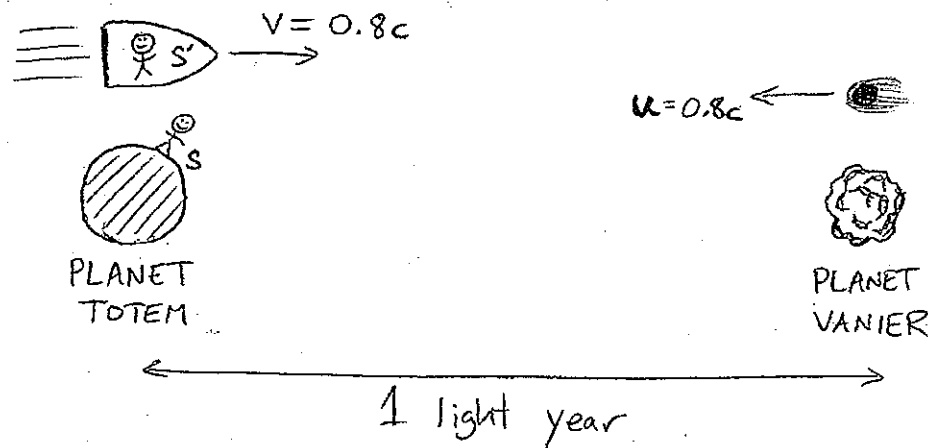 V = 0.8c
S'
u = 0.8c
S
PLANET
TOTEM
PLANET
VANIER
1 light year